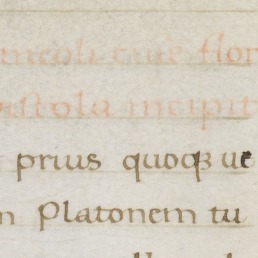 nicoli ciuis flor
pistola incipit
prius quoqꝫ ue
m Platonem tu